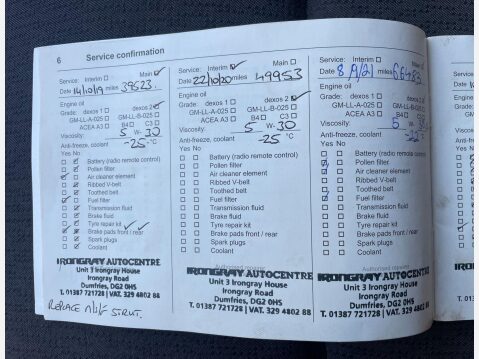 6
Service confirmation
Service: Interim Main
Date 14/10/19 miles 39523
Engine oil
Grade: dexos 1 dexos 2
GM-LL-A-025 GM-LL-B-025
ACEA A3 B4 C3
Viscosity: 5 W-30
Anti-freeze, coolant -25 °C
Yes No
Battery (radio remote control)
Pollen filter
Air cleaner element
Ribbed V-belt
Toothed belt
Fuel filter
Transmission fluid
Brake fluid
Tyre repair kit
Brake pads front / rear
Spark plugs
Coolant
IRONGRAY AUTOCENTRE
Unit 3 Irongray House
Irongray Road
Dumfries, DG2 0HS
T. 01387 721728 | VAT. 329 4802 88
REPLACE STRUT.
Service: Interim Main
Date 22/10/20 miles 49953
Engine oil
Grade: dexos 1 dexos 2
GM-LL-A-025 GM-LL-B-025
ACEA A3 B4 C3
Viscosity: 5 W-30
Anti-freeze, coolant -25 °C
Yes No
Battery (radio remote control)
Pollen filter
Air cleaner element
Ribbed V-belt
Toothed belt
Fuel filter
Transmission fluid
Brake fluid
Tyre repair kit
Brake pads front / rear
Spark plugs
Coolant
IRONGRAY AUTOCENTRE
Unit 3 Irongray House
Irongray Road
Dumfries, DG2 0HS
T. 01387 721728 | VAT. 329 4802 88
Service: Interim Main
Date miles
Engine oil
Grade: dexos 1 dexos 2
GM-LL-A-025 GM-LL-B-025
ACEA A3 B4 C3
Viscosity: 5 W-30
Anti-freeze, coolant
Yes No
Battery (radio remote control)
Pollen filter
Air cleaner element
Ribbed V-belt
Toothed belt
Fuel filter
Transmission fluid
Brake fluid
Tyre repair kit
Brake pads front / rear
Spark plugs
Coolant
IRONGRAY AUTOCENTRE
Unit 3 Irongray House
Irongray Road
Dumfries, DG2 0HS
T. 01387 721728 | VAT. 329 4802 88